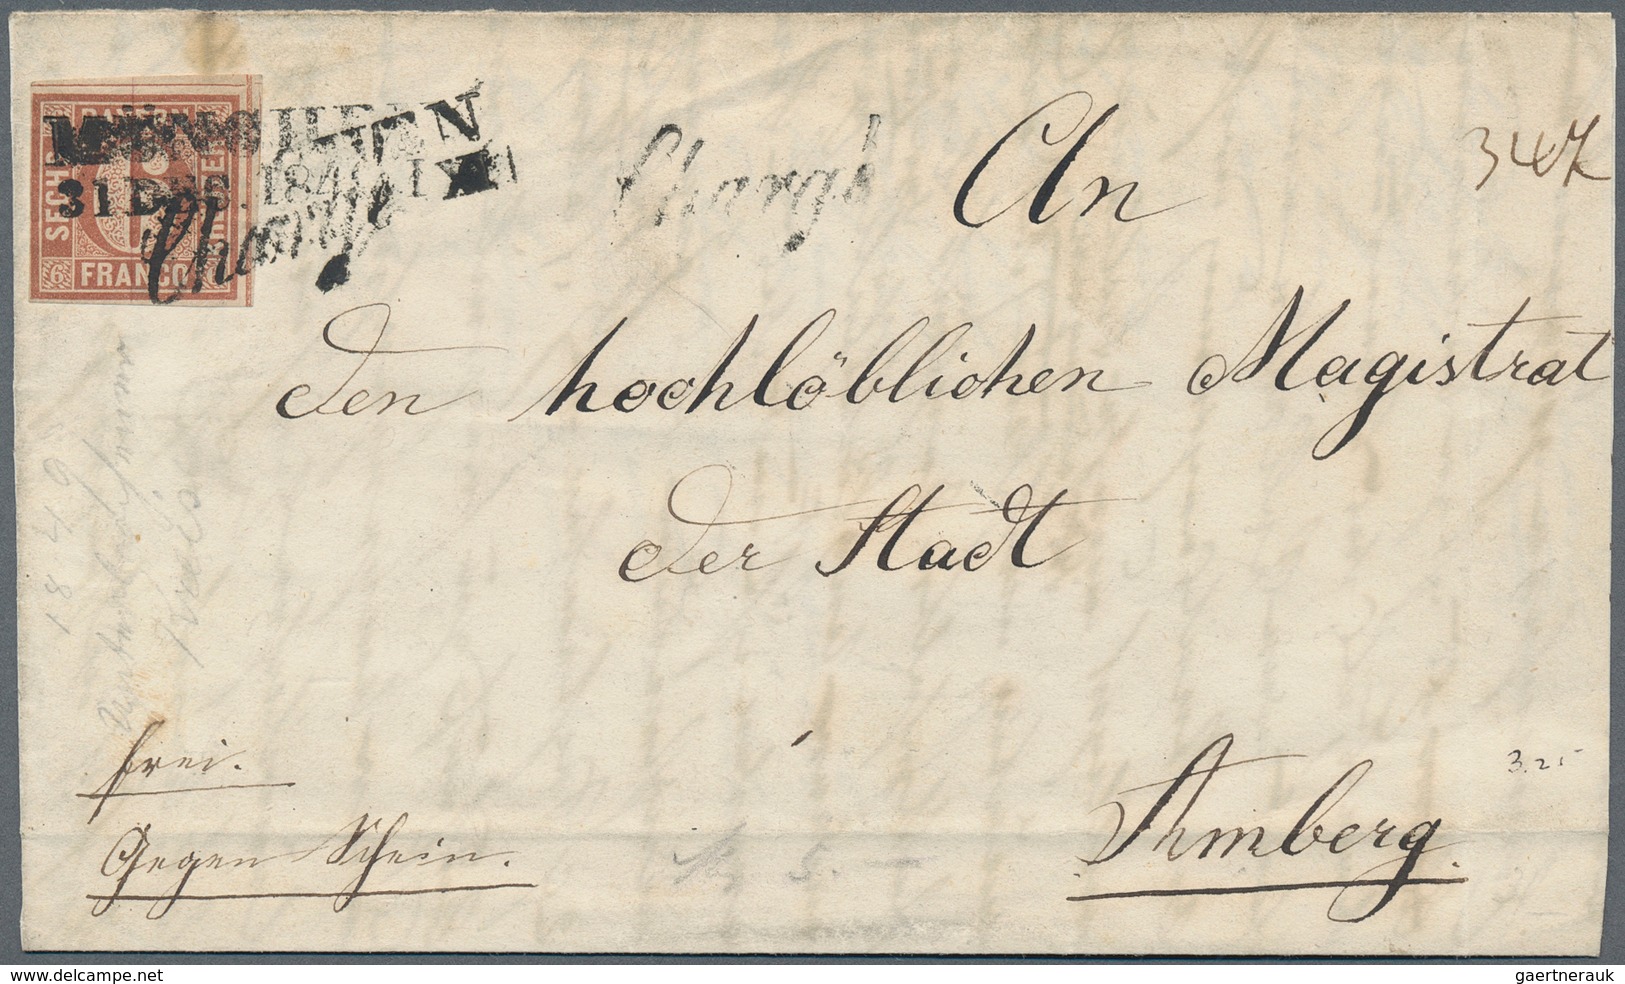 BAYERN
SECHS
FRANCO
6
MÜNCHEN
31 DEC. 184
Chargé
Chargé
An
347
den hochlöblichen Magistrat
der Stadt
Amberg.
3.25
frei.
Gegen Schein.
1849
5.-
www.delcampe.net
gaertnerauk